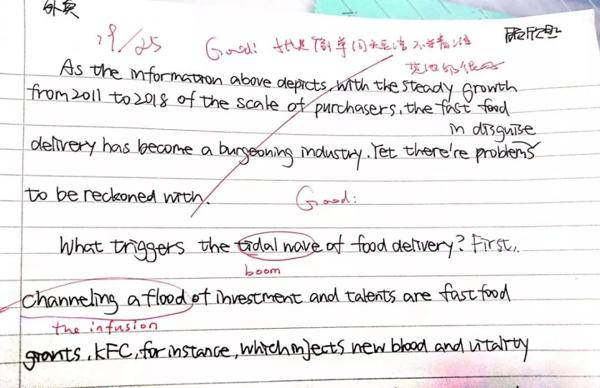 外卖
19/25 Good:
As the information above depicts, with the steady growth
from 2011 to 2018 of the scale of purchasers, the fast food
in disguise
delivery has become a burgeoning industry. Yet there're problems
to be reckoned with.
Good:
What triggers the tidal wave of food delivery? First,
boom
channeling a flood of investment and talents are fast food
the infusion
giants, KFC, for instance, which injects new blood and vitality